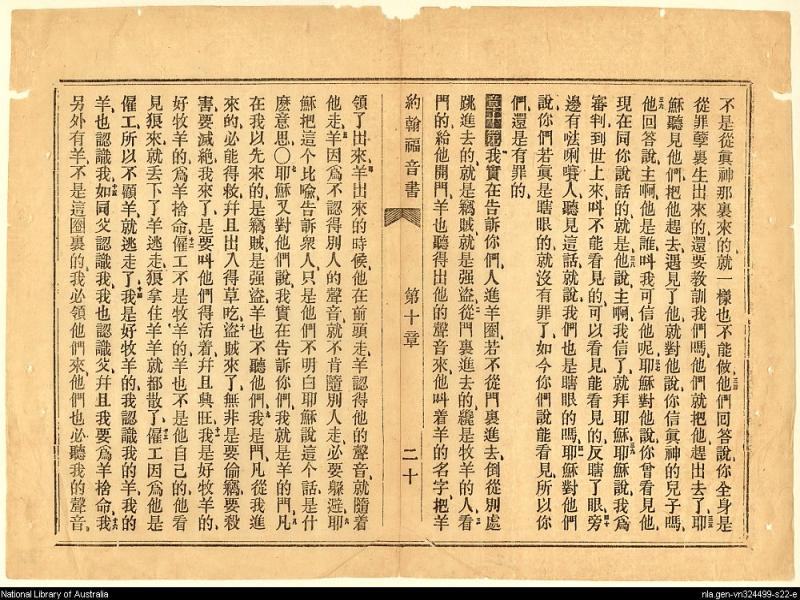 不是從眞神那裏來的就一樣也不能做他們回答說你全身是
從罪孽裏生出來的還要教訓我們嗎他們就把他趕出去了耶
穌聽見他們把他趕去遇見了他就對他說你信眞神的兒子嗎
他回答說主啊他是誰叫我可信他呢耶穌對他說你曾看見他
現在同你說話的就是他說主啊我信了就拜耶穌耶穌說我爲
審判到世上來叫不能看見的可以看見能看見的反瞎了眼旁
邊有唎人聽見這話就說我們也是瞎眼的嗎耶穌對他們
說你們若眞是瞎眼的就沒有罪了如今你們說能看見所以你
們還是有罪的
我實在告訴你們人進羊圈若不從門裏進去倒從別處
跳進去的就是竊賊就是强盜從門裏進去的纔是牧羊的人看
門的給他開門羊也聽得出他的聲音來他叫着羊的名字把羊
約翰福音書 第十章 二十
領了出來羊出來的時候他在前頭走羊認得他的聲音就隨着
他走羊因爲不認得別人的聲音就不肯隨別人走必要躱避耶
穌把這個比喩告訴衆人只是他們不明白耶穌說這個話是什
麽意思○耶穌又對他們說我實在告訴你們我就是羊的門凡
在我以先來的是竊賊是强盜羊也不聽他們我是門凡從我進
來的必能得救幷且出入得草吃盜賊來了無非是要偷竊要殺
害要滅絶我來了是要叫他們得活着幷且興旺我是好牧羊的
好牧羊的爲羊捨命僱工不是牧羊的羊也不是他自己的他看
見狼來就丟下了羊逃走狼拿住羊羊就都散了僱工因爲他是
僱工所以不顧羊就逃走了我是好牧羊的我認識我的羊我的
羊也認識我如同父認識我我也認識父幷且我要爲羊捨命我
另外有羊不是這圈裏的我必領他們來他們也必聽我的聲音
National Library of Australia
nla.gen-vn324499-s22-e